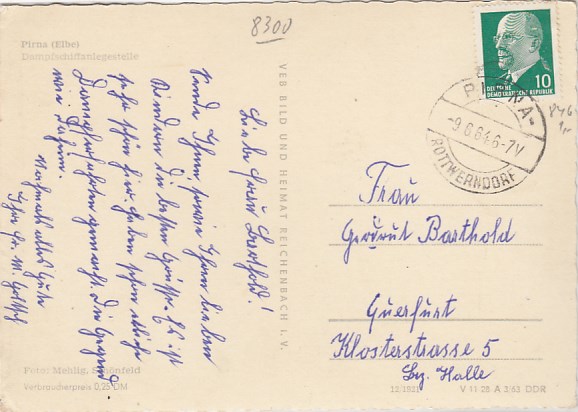 8300
Pirna (Elbe)
Dampfschiffanlegestelle
Liebe Frau Barthold!
sende Ihnen, sowie Ihren lieben
Kindern die besten Grüsse. Es ist
sehr schön hier. Haben schon etliche
Dampferfahrten gemacht. Die Gegend
wie daheim.
Nochmals alles Gute
Ihre Fr. M.
VEB BILD UND HEIMAT REICHENBACH I. V.
DEUTSCHE
DEMOKRATISCHE REPUBLIK
10
PIRNA
-9.6.64.6-7V
ROTTWERNDORF
Frau
Gertrut Barthold
Querfurt
Klosterstrasse 5
Bz. Halle
Foto: Mehlig, Schönfeld
Verbraucherpreis 0,25 DM
12/1921
V 11 28 A 3/63 DDR